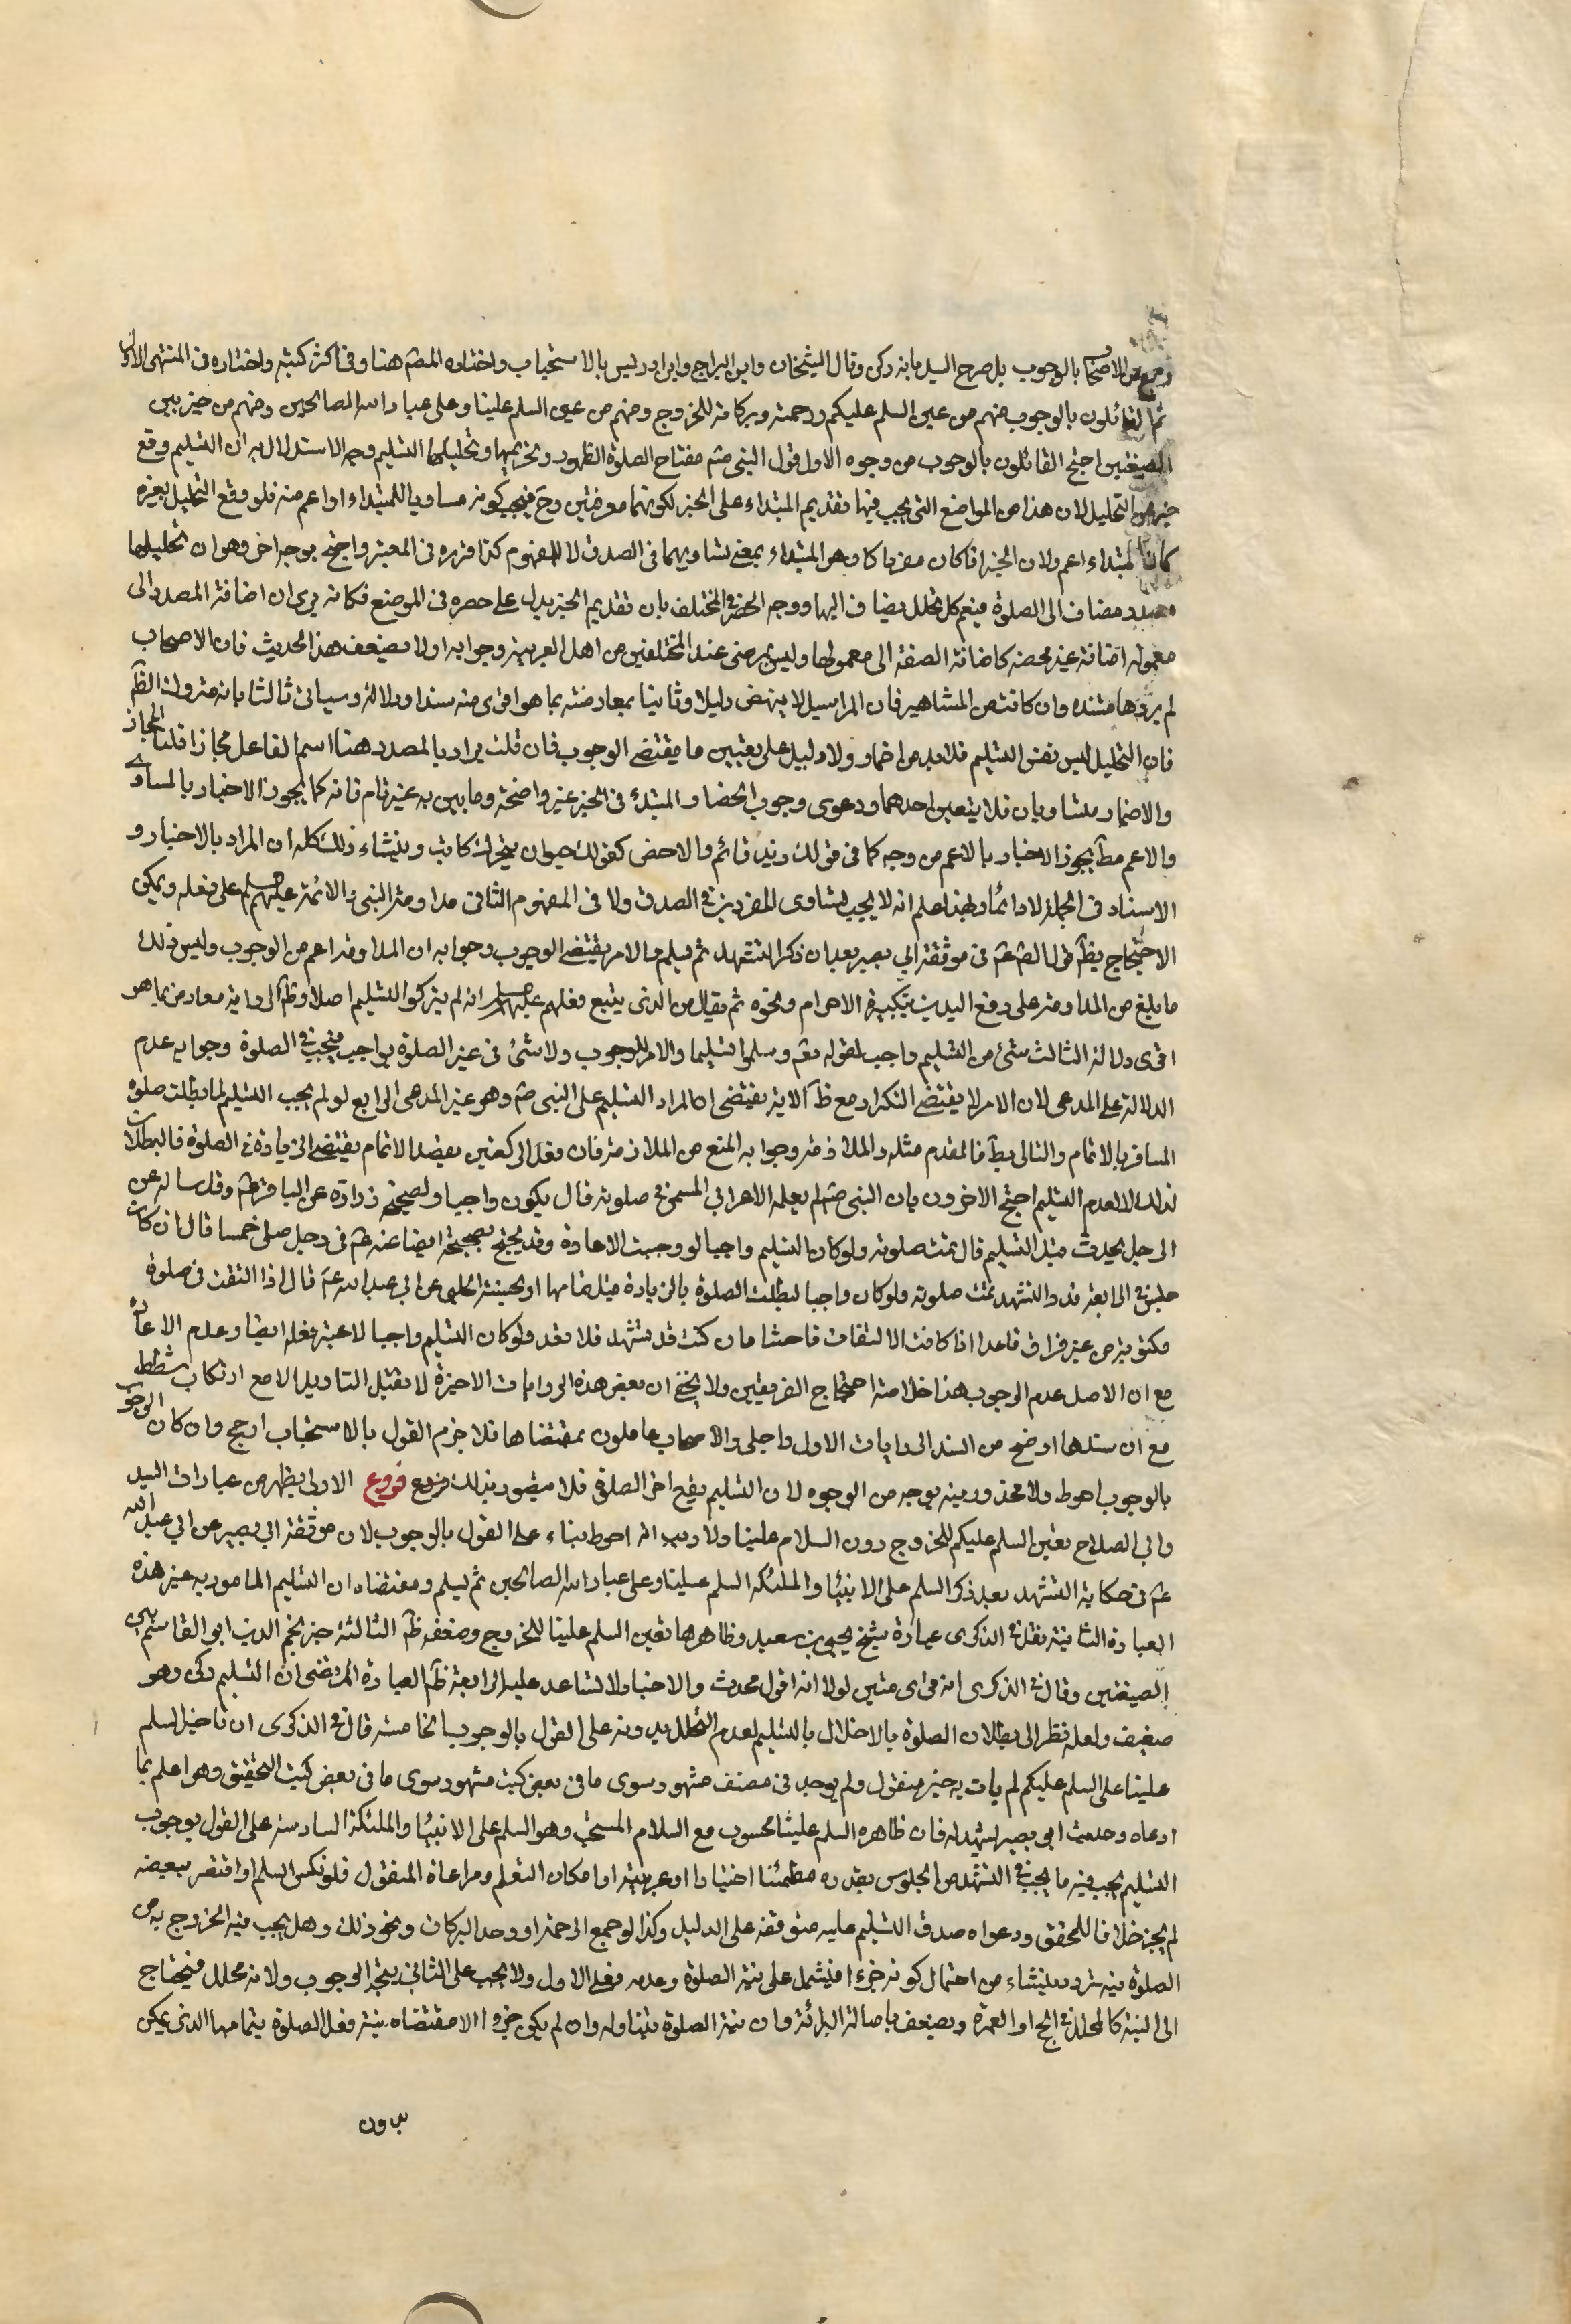 وجمع من الاصحاب بالوجوب بل صرح السيد بانه ركن وقال الشيخان وابن البراج وابن ادريس بالاستحباب واختاره المصّ هنا وفى اكثر كتبه واختاره فى المنتهى الاول
ثم القائلون بالوجوب منهم من عين السلم عليكم ورحمته وبركاته للخروج ومنهم من عين السلم علينا وعلى عباد الله الصالحين ومنهم من خير بين
الصيغتين احتج القائلون بالوجوب من وجوه الاول قول النبى صم مفتاح الصلوة الطهور وتحريمها وتحليلها التسليم وجه الاستدلال به ان التسليم وقع
خبرا من التحليل لان هذا من المواضع التى يجب فيها تقديم المبتداء على الخبر لكونهما معرفتين وحّ فيجب كونه مساويا للمبتداء او اعم منه فلو وقع التحليل بغيره
كان المبتداء اعم ولان الخبر اذا كان مفردا كان هو المبتداء بمعنى تساويهما فى الصدق لا المفهوم كذا قرره فى المعتبر واحتج بوجه اخر وهو ان تحليلها
مصدر مضاف الى الصلوة فيعم كل تحلل يضاف اليها ووجه الحصر فى المختلف بان تقديم الخبر يدل على حصره فى الموضع فكانه يرى ان اضافة المصدر الى
معموله اضافة غير محضه كاضافة الصفة الى معمولها وليس بمرضى عند المختلفين من اهل العربية وجوابه اولا بضعف هذا الحديث فان الاصحاب
لم يروها مسنده وان كانت من المشاهير فان المراسيل لا ينهض دليلا وثانيا بمعارضته بما هو اقوى منه سندا ودلالة وسياتى ثالثا بانه متروك الظّم
فان التحليل ليس نفس التسليم فلابد من اضمار ولا دليل على تعيين ما يقتضى الوجوب فان قلت يراد بالمصدر هنا اسم الفاعل مجازا قلنا المجاز
والاضمار متساويان فلا يتعين احدهما ودعوى وجوب انحصار المبتدء فى الخبر غير واضحة وما بين به غير تام فانه كما يجوز الاخبار بالمساوى
والاعم مطّ يجوز الاخبار بالاعم من وجه كما فى قولك زيد قائم والاخص كقولك حيوان يتحرك كاتب ومنشاء ذلك كله ان المراد بالاخبار و
الاسناد فى الجملة لا دائما وبهذا علم انه لا يجب تساوى المفردين فى الصدق ولا فى المفهوم الثانى مداومة النبى والائمة عليهم السلم على فعله ويمكن
الاحتجاج بظّم قول الصّ عّم فى موثقة ابى بصير بعد ان ذكر التشهد ثم تسلم والامر يقتضى الوجوب وجوابه ان المداومة اعم من الوجوب وليس ذلك
ما بلغ من المداومة على رفع اليدين بتكبيرة الاحرام ونحوه ثم يقال من الذى يتبع فعلهم عليهم السلم انهم لم يتركوا التسليم اصلا وظّم الرواية معارض بما هو
اقوى دلالة الثالث شئ من التسليم واجب لقوله تعّم وسلموا تسليما والامر للوجوب ولا شئ فى غير الصلوة بواجب فيجب فى الصلوة وجوابه عدم
الدلالة على المدعى لان الامر لا يقتضى التكرار مع ظّم الاية يقتضى ان المراد التسليم على النبى صّم وهو غير المدعى الرابع لو لم يجب التسليم لما بطلت صلوة
المسافر بالاتمام والتالى بطّ فالمقدم مثله والملازمة وجوابه المنع من الملازمة فان فعل الركعتين بقصد الاتمام يقتضى الزيادة فى الصلوة فالبطلان
لذلك لا لعدم التسليم احتج الاخرون بان النبى صّم لم يعلمه الاعرابى المسئ فى صلوته قال يكون واجبا ولصحيحة زرارة عن الباقر عّم وقد ساله عن
الرجل يحدث قبل التسليم قال تمت صلوته ولو كان التسليم واجبا لوجبت الاعادة وقد يحتج بصحيحة ايضا عنه عّم فى رجل صلى خمسا قال ان كان
جلس فى الرابعة قدر التشهد تمت صلوته ولو كان واجبا لبطلت الصلوة بالزيادة قبل تمامها او لحسنة الحلبى عن ابى عبد الله عّم قال اذا التفت فى صلوة
مكتوبة من غير فراق فاعد اذا كانت الالتفات فاحشا وان كنت قد تشهد فلا تعد ولو كان التسليم واجبا لاعتبر فعله ايضا وعدم الاعادة
مع ان الاصل عدم الوجوب هذا خلاصة احتجاج الفريقين ولا يخفى ان بعض هذه الروايات الاخيرة لا يقبل التاويل الا مع ارتكاب شطط
مع ان سندها اوضح من السند الروايات الاول واجلى والاصحاب عاملون بمقتضاها فلا جرم القول بالاستحباب ارجح وان كان الوجوب
بالوجوب احوط ولا محذور فيه بوجه من الوجوه لان التسليم يقع اخر الصلوة فلا يتصور بذلك فروع الاول يظهر من عبارات السيد
وابى الصلاح تعين السلم عليكم للخروج دون السلام علينا ولا ريب انه احوط بناء على القول بالوجوب لان موثقة ابى بصير عن ابى عبد الله
عّم فى حكاية التشهد بعد ذكر السلم على الانبيا والملئكه السلم علينا وعلى عباد الله الصالحين ثم تسلم ومقتضاه ان التسليم المامور به غير هذه
العبارة الثانية نقل فى الذكرى عبارة شيخ يحيى بن سعيد وظاهرها تعين السلم علينا للخروج وضعفه ظّم الثالثة خير نجم الدين ابو القاسم بين
الصيغتين وقال فى الذكرى انه قوى متين لولا انه اقول محدث والاخبار لا تساعد عليه الرابعة ظّم العبارة المرتضى ان التسليم ركن وهو
ضعيف ولعله نظر الى بطلان الصلوة بالاخلال بالتسليم لعدم التحلل بدونه على القول بالوجوب الخامسة قال فى الذكرى ان تاخير السلم
علينا على السلم عليكم لم يات به خبر منقول ولم يوجد فى مصنف مشهور سوى ما فى بعض كتب مشهور سوى ما فى بعض كتب المحقق وهو اعلم بما
ادعاه وحديث ابى بصير يشهد له فان ظاهره السلم علينا محسوب مع السلام المستحب وهو السلم على الانبيا والملئكة السادسة على القول بوجوب
التسليم يجب فيه ما يجب فى التشهد من الجلوس بقدره مطمئنا اختيارا او عربيته او امكان التعلم ومراعاة المنقول فلو نكس السلم او اقتصر ببعضه
لم يجز خلافا للمحقق ودعواه صدق التسليم عليه متوقفه على الدليل وكذا لو جمع الرحمة او وحد البركات ونحو ذلك وهل يجب نية الخروج به من
الصلوة فيه تردد ينشاء من احتمال كونه جزءا فيشمل على نية الصلوة وعدمه فعلى الاول ولا يجب على الثانى يتجه الوجوب ولانه محلل فيحتاج
الى النية كالمحلل فى الحج او العمرة ويضعف باصالة البرائة وان نية الصلوة تتناوله وان لم يكن جزءا الا مقتضاه نية فعل الصلوة بتمامها الذى يمكن
بدون